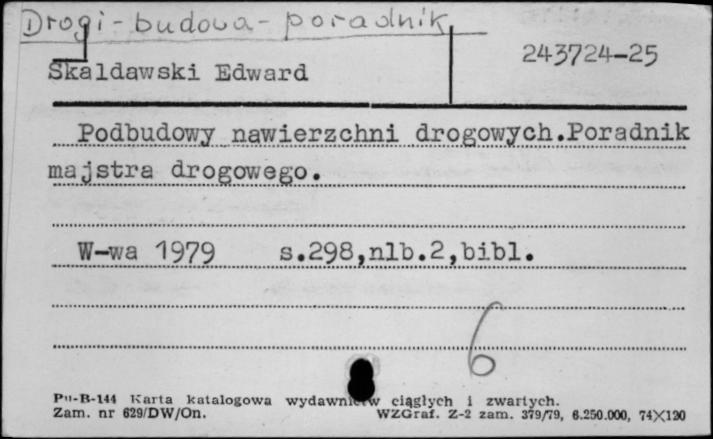 Drogi - budowa - poradnik
243724-25
Skaldawski Edward
Podbudowy nawierzchni drogowych.Poradnik
majstra drogowego.
W-wa 1979 s.298,nlb.2,bibl.
6
Pu-B-144 Karta katalogowa wydawnictw ciągłych i zwartych.
Zam. nr 629/DW/On. WZGraf. Z-2 zam. 379/79, 6.250.000, 74X120